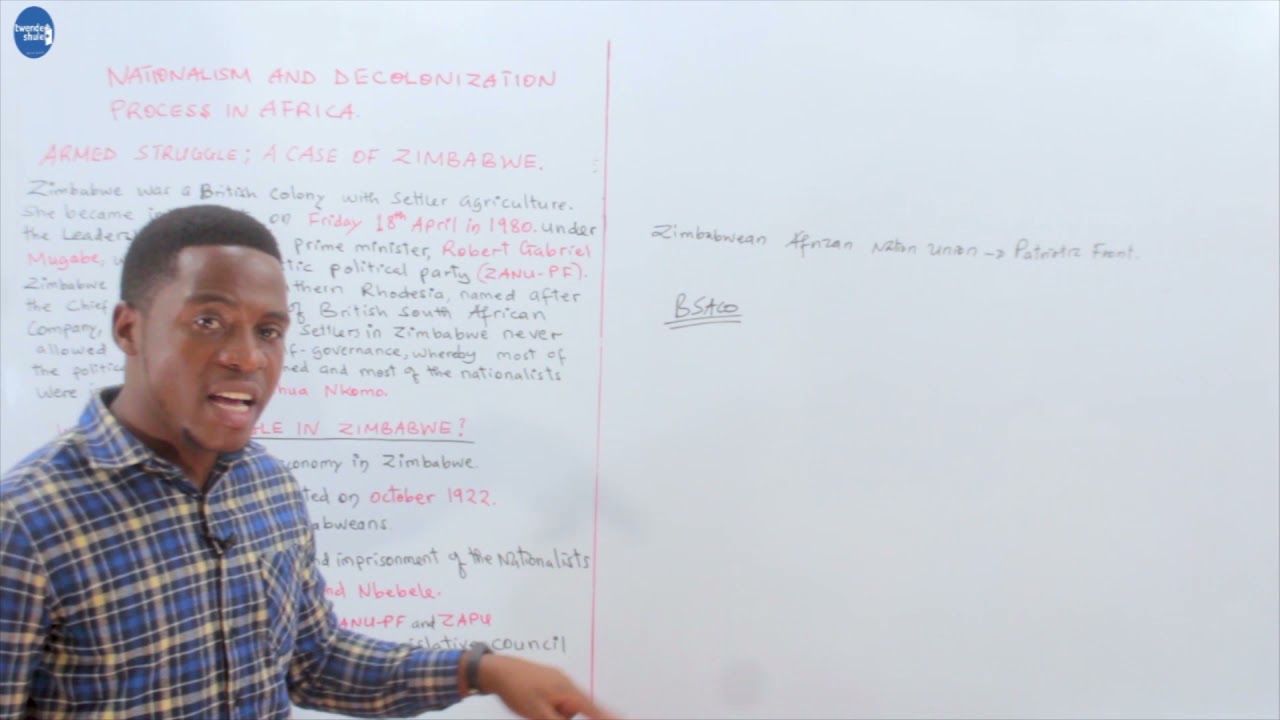 twende
shule
NATIONALISM AND DECOLONIZATION
PROCESS IN AFRICA.
ARMED STRUGGLE; A CASE OF ZIMBABWE.
Zimbabwe was a British colony with settler agriculture.
She became on Friday 18th April in 1980. under
the prime minister, Robert Gabriel
Mugabe, political party (ZANU-PF).
Zimbabwe Rhodesia, named after
the Chief of British South African
Company, settlers in Zimbabwe never
allowed -governance, whereby most of
the and most of the nationalists
were Nkomo.
IN ZIMBABWE?
in Zimbabwe.
on october 1922.
imprisonment of the Nationalists
Nbebele.
and ZAPU
council
Zimbabwean African Nation union → Patriotic Front.
BSACO